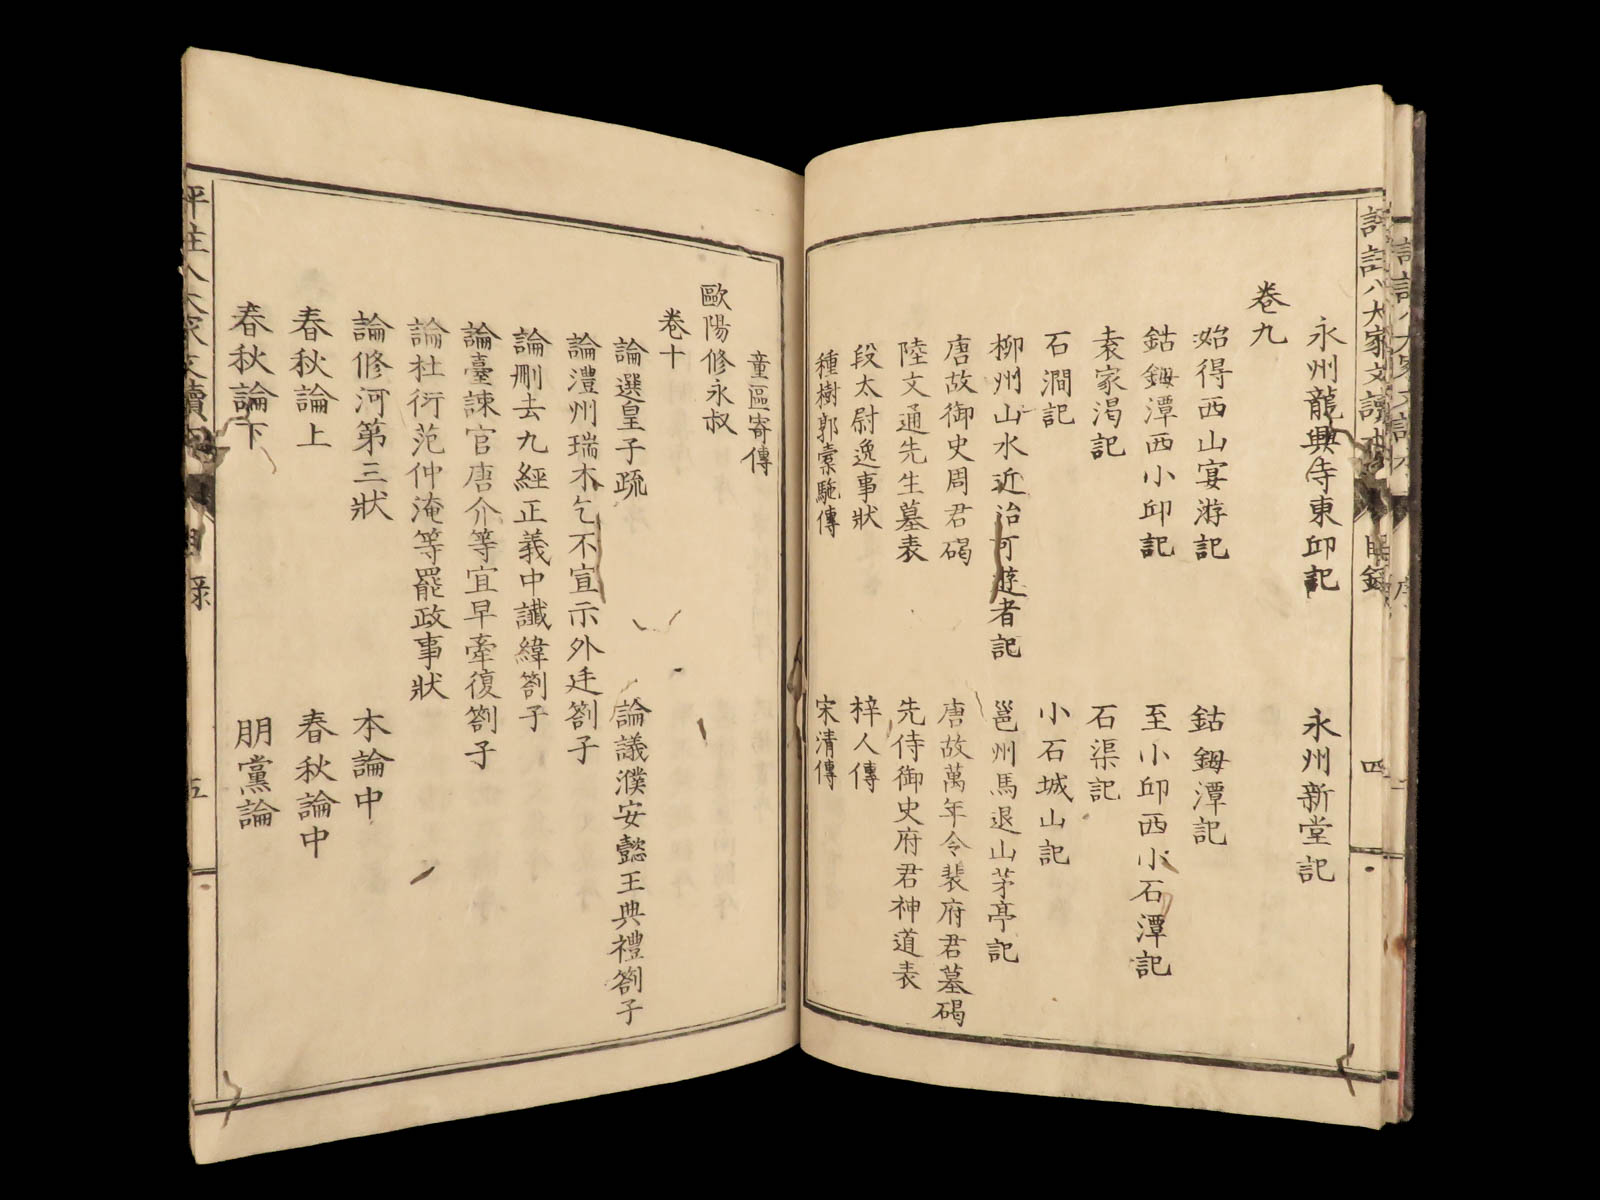 永州龍興寺東邱記 永州新堂記
卷九
始得西山宴游記 鈷鉧潭記
鈷鉧潭西小邱記 至小邱西小石潭記
袁家渴記 石渠記
石澗記 小石城山記
柳州山水近治可遊者記 邕州馬退山茅亭記
唐故御史周君碣 唐故萬年令裴府君墓碣
陸文通先生墓表 先侍御史府君神道表
段太尉逸事狀 梓人傳
種樹郭橐駞傳 宋清傳
童區寄傳
歐陽修永叔
卷十
論選皇子疏 論議濮安懿王典禮劄子
論澧州瑞木乞不宣示外廷劄子
論刪去九經正義中讖緯劄子
論臺諫官唐介等宜早牽復劄子
論杜衍范仲淹等罷政事狀
論修河第三狀 本論中
春秋論上 春秋論中
春秋論下 朋黨論
八大家文讀本 目錄 四
目錄 五